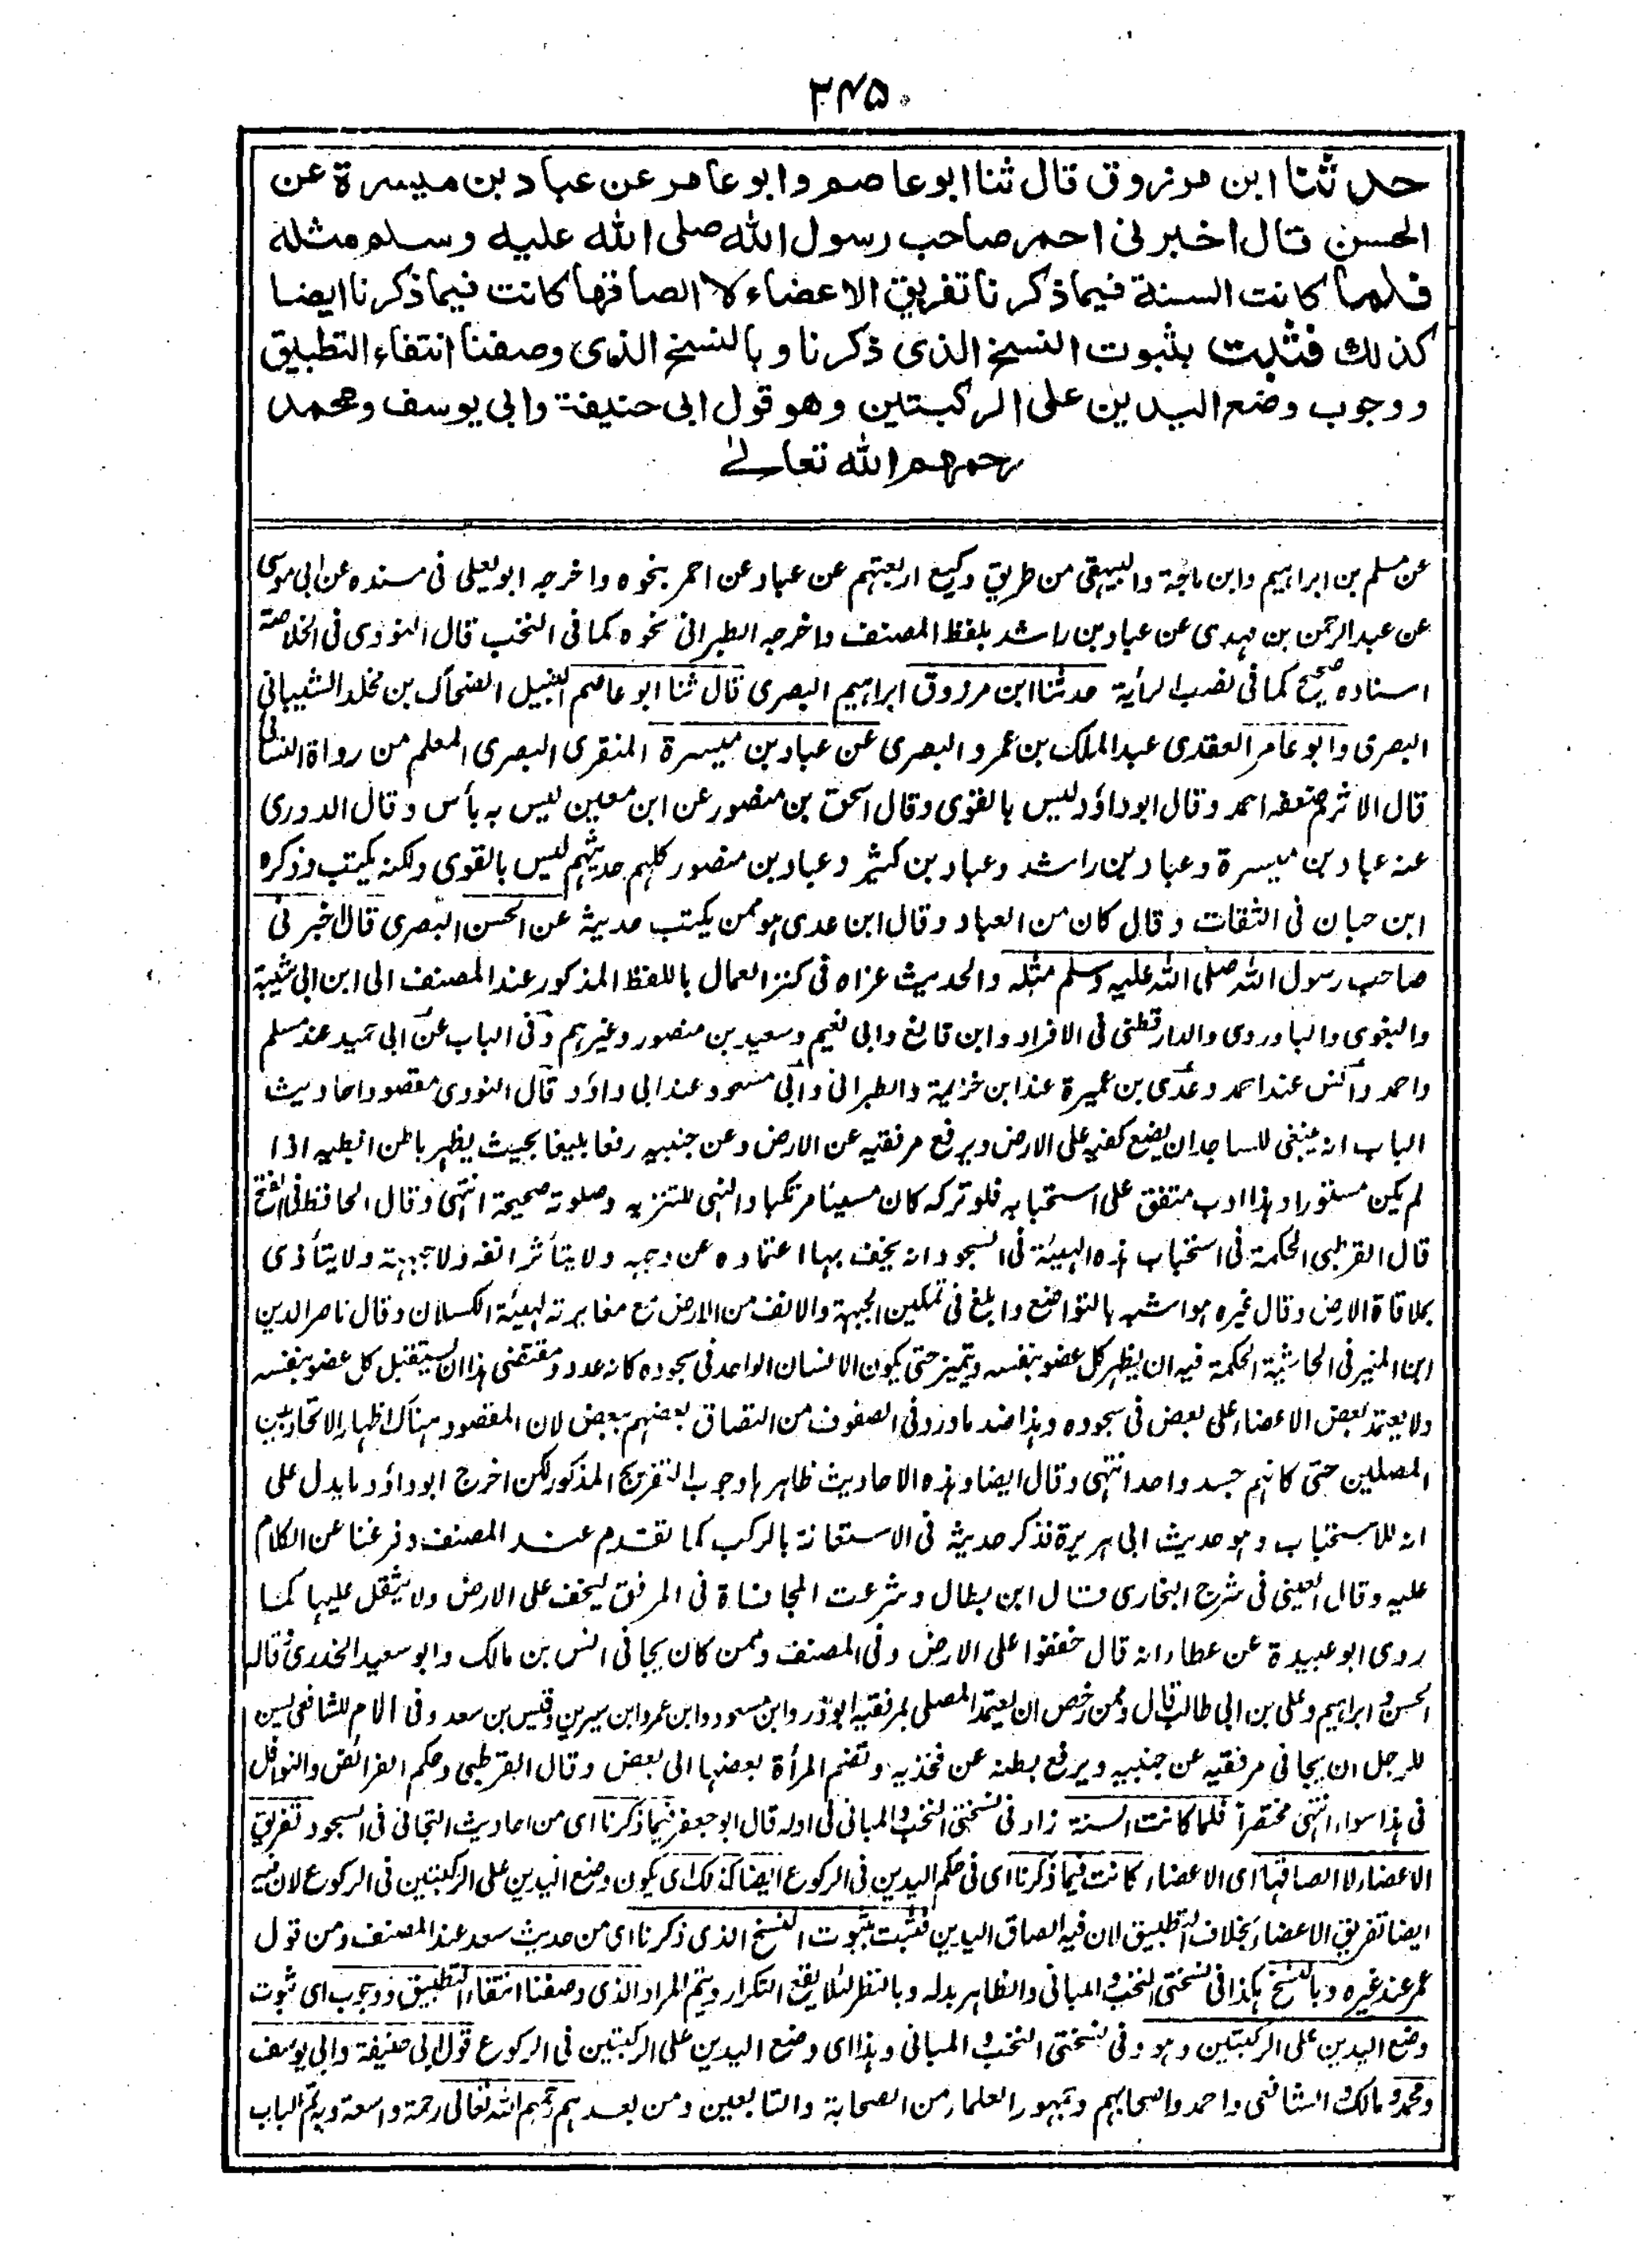 ۳۴۵
حدثنا ابن مرزوق قال ثنا ابو عاصم وابو عامر عن عباد بن ميسرة عن
الحسن قال اخبرنى احمر صاحب رسول الله صلى الله عليه وسلم مثله
فلما كانت السنة فيما ذكرنا تفريق الاعضاء لا الصاقها كانت فيما ذكرنا ايضا
كذلك فثبت بثبوت النسخ الذى ذكرنا وبالنسخ الذى وصفنا انتفاء التطبيق
ووجوب وضع اليدين على الركبتين وهو قول ابى حنيفة وابى يوسف ومحمد
رحمهم الله تعالے
عن مسلم بن ابراهيم وابن ماجة والبيهقى من طريق وكيع اربعتهم عن عباد عن احمر بنحوه واخرجه ابو يعلى فى مسنده عن ابى موسى
عن عبد الرحمن بن مهدى عن عباد بن راشد بلفظ المصنف واخرجه الطبرانى نحوه كما فى النخب قال النووى فى الخلاصة
اسناده صحيح كما فى نصب الرأية حدثنا ابن مرزوق ابراهيم البصرى قال ثنا ابو عاصم النبيل الضحاك بن مخلد الشيبانى
البصرى وابو عامر العقدى عبد الملك بن عمرو البصرى عن عباد بن ميسرة المنقرى البصرى المعلم من رواة النسائى
قال الاثرم ضعفه احمد وقال ابو داؤد ليس بالقوى وقال اسحق بن منصور عن ابن معين ليس به بأس وقال الدورى
عنه عباد بن ميسرة وعباد بن راشد وعباد بن كثير وعباد بن منصور كلهم حديثهم ليس بالقوى ولكنه يكتب وذكره
ابن حبان فى الثقات وقال كان من العباد وقال ابن عدى هو ممن يكتب حديثه عن الحسن البصرى قال اخبرنى
صاحب رسول الله صلى الله عليه وسلم مثله والحديث عزاه فى كنز العمال باللفظ المذكور عند المصنف الى ابن ابى شيبة
والبغوى والباوردى والدارقطنى فى الافراد وابن قانع وابى نعيم وسعيد بن منصور وغيرهم وفى الباب عن ابى حميد عند مسلم
واحمد وانس عند احمد وعدى بن عميرة عند ابن خزيمة والطبرانى وابى مسعود عند ابى داؤد قال النووى مقصود احاديث
الباب انه ينبغى للساجد ان يضع كفيه على الارض ويرفع مرفقيه عن الارض وعن جنبيه رفعا بليغا بحيث يظهر باطن ابطيه اذا
لم يكن مستورا وهذا ادب متفق على استحبابه فلو تركه كان مسيئا مرتكبا والنهى للتنزيه وصلوته صحيحة انتهى وقال الحافظ فى الفتح
قال القرطبى الحكمة فى استحباب هذه الهيئة فى السجود انه يخف بها اعتماده عن وجهه ولا يتأثر انفه ولا جبهته ولا يتأذى
بملاقاة الارض وقال غيره هو اشبه بالتواضع وابلغ فى تمكين الجبهة والانف من الارض مع مغايرته لهيئة الكسلان وقال ناصر الدين
ابن المنير فى الحاشية الحكمة فيه ان يظهر كل عضو بنفسه ويتميز حتى يكون الانسان الواحد فى سجوده كانه عدد ومقتضى هذا ان يستقبل كل عضو بنفسه
ولا يعتمد بعض الاعضاء على بعض فى سجوده وهذا ضد ما ورد فى الصفوف من التصاق بعضهم ببعض لان المقصود هناك اظهار الاتحاد بين
المصلين حتى كانهم جسد واحد انتهى وقال ايضا وهذه الاحاديث ظاهرها وجوب التفريج المذكور لكن اخرج ابو داؤد ما يدل على
انه للاستحباب وهو حديث ابى هريرة فذكر حديثه فى الاستعانة بالركب كما تقدم عند المصنف وفرغنا عن الكلام
عليه وقال العينى فى شرح البخارى قال ابن بطال وشرعت المجافاة فى المرفق ليخف على الارض ولا يثقل عليها كما
روى ابو عبيدة عن عطاء انه قال خففوا على الارض وفى المصنف وممن كان يجافى انس بن مالك وابو سعيد الخدرى قاله
الحسن وابراهيم وعلى بن ابى طالب قال وممن رخص ان يعتمد المصلى بمرفقيه ابو ذر وابن مسعود وابن عمر وابن سيرين وقيس بن سعد وفى الام للشافعى يسن
للرجل ان يجافى مرفقيه عن جنبيه ويرفع بطنه عن فخذيه وتضم المرأة بعضها الى بعض وقال القرطبى وحكم الفرائض والنوافل
فى هذا سواء انتهى مختصرا فلما كانت السنة زاد فى نسختى النخب والمبانى فى اوله قال ابو جعفر فيما ذكرنا اى من احاديث التجافى فى السجود تفريق
الاعضاء لا الصاقها اى الاعضاء كانت فيما ذكرنا اى فى حكم اليدين فى الركوع ايضا كذلك اى يكون وضع اليدين على الركبتين فى الركوع لان فيه
ايضا تفريق الاعضاء بخلاف التطبيق لان فيه الصاق اليدين فثبت بثبوت النسخ الذى ذكرنا اى من حديث سعد عند المصنف ومن قول
عمر عند غيره وبالنسخ هكذا فى نسختى النخب والمبانى والظاهر بدله وبالنظر لئلا يقع التكرار ويتم المراد الذى وصفنا انتفاء التطبيق ووجوب اى ثبوت
وضع اليدين على الركبتين وهو وفى نسختى النخب والمبانى وهذا اى وضع اليدين على الركبتين فى الركوع قول ابى حنيفة وابى يوسف
ومحمد ومالك والشافعى واحمد واصحابهم وجمهور العلماء من الصحابة والتابعين ومن بعدهم رحمهم الله تعالى رحمة واسعة وبه تم الباب